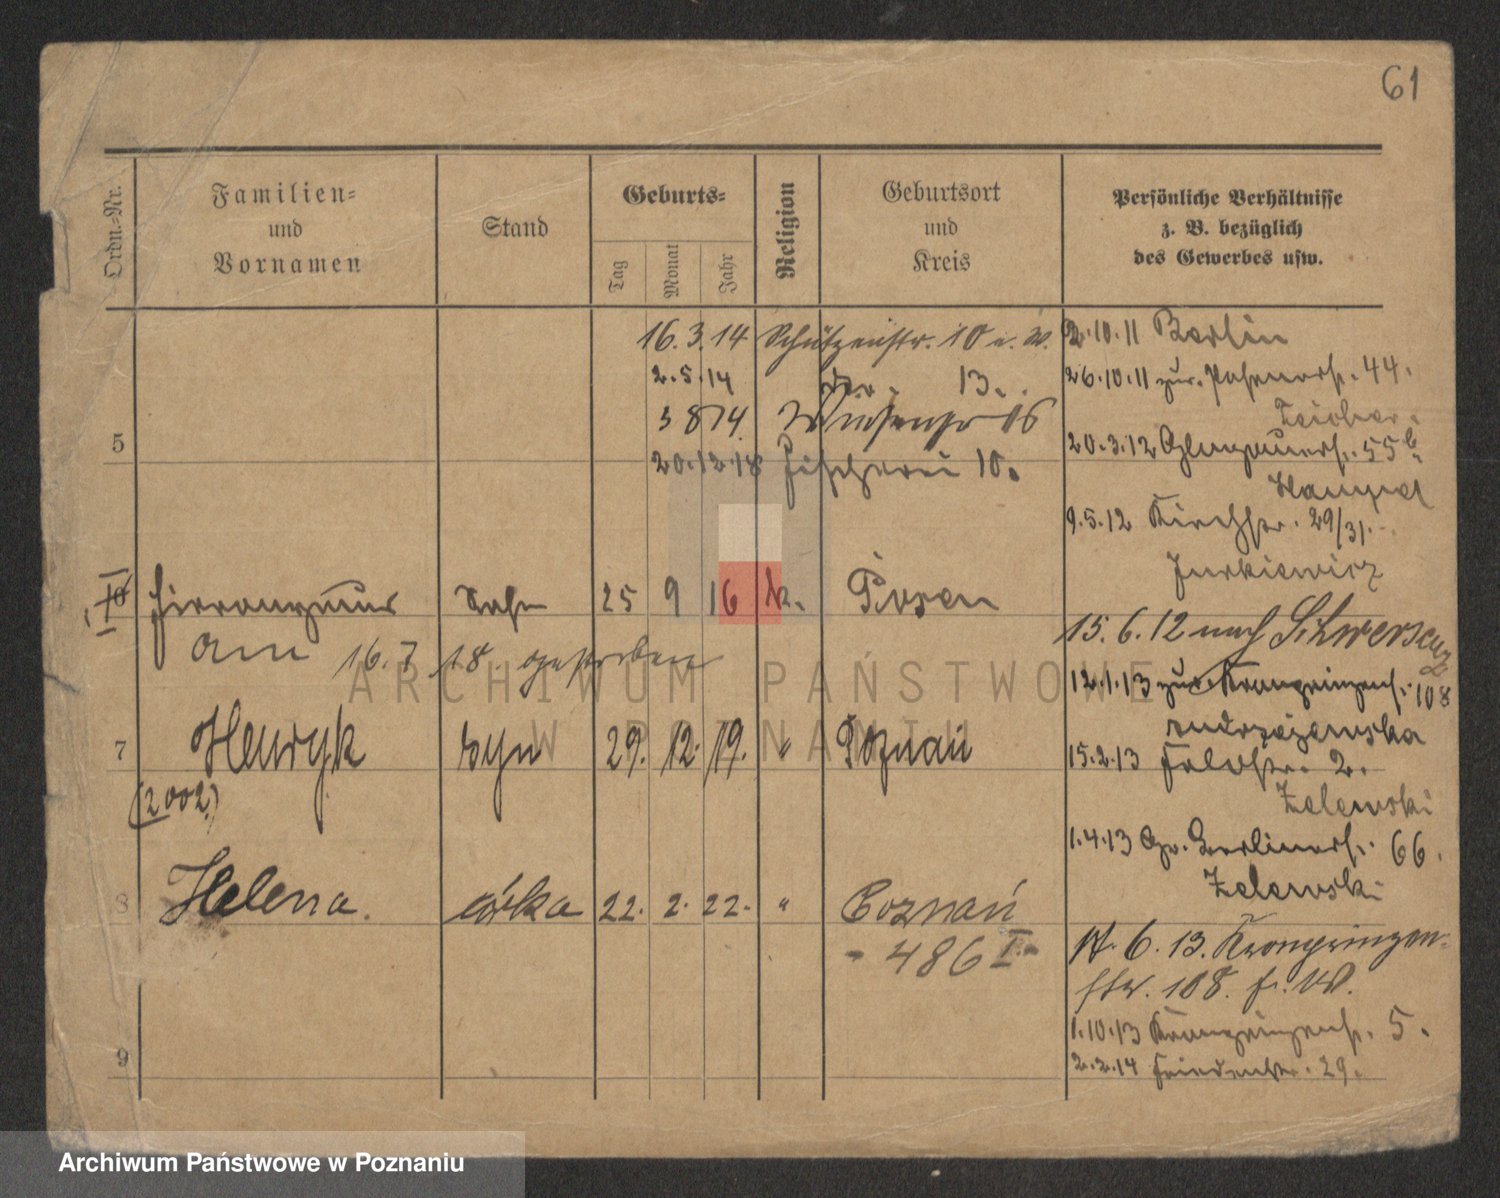 61
Ordn.=Nr.
Familien=
und
Vornamen
Stand
Geburts=
Tag
Monat
Jahr
Religion
Geburtsort
und
Kreis
Persönliche Verhältnisse
z. B. bezüglich
des Gewerbes usw.
16.3.14 Schützenstr. 10
2.5.14 13.
3 8 14
20.12.18 Fischerei 10.
5
Hieronymus Sohn 25 9 16 k. Posen
am 16.7.18. gestorben
7 Henryk syn 29. 12. 19. " Poznań
(2002)
8 Helena. córka 22. 2. 22. " Poznań
- 486 I -
9
2.10.11 Berlin
26.10.11 zur. Posenerstr. 44.
20.3.12 55b
9.5.12 Kirchstr. 29/31.
Jurkiewicz
15.6.12 nach Schwersenz
12.1.13 zur. Kronprinzenstr. 108
Andrzejewska
15.2.13 Feldstr. 2.
Zelewski
1.4.13 Gr. Berlinerstr. 66.
Zelewski
6. 13. Kronprinzen-
str. 108.
1.10.13 Kronprinzenstr. 5.
2.2.14 Friedenstr. 29.
ARCHIWUM PAŃSTWOWE
W POZNANIU
Archiwum Państwowe w Poznaniu